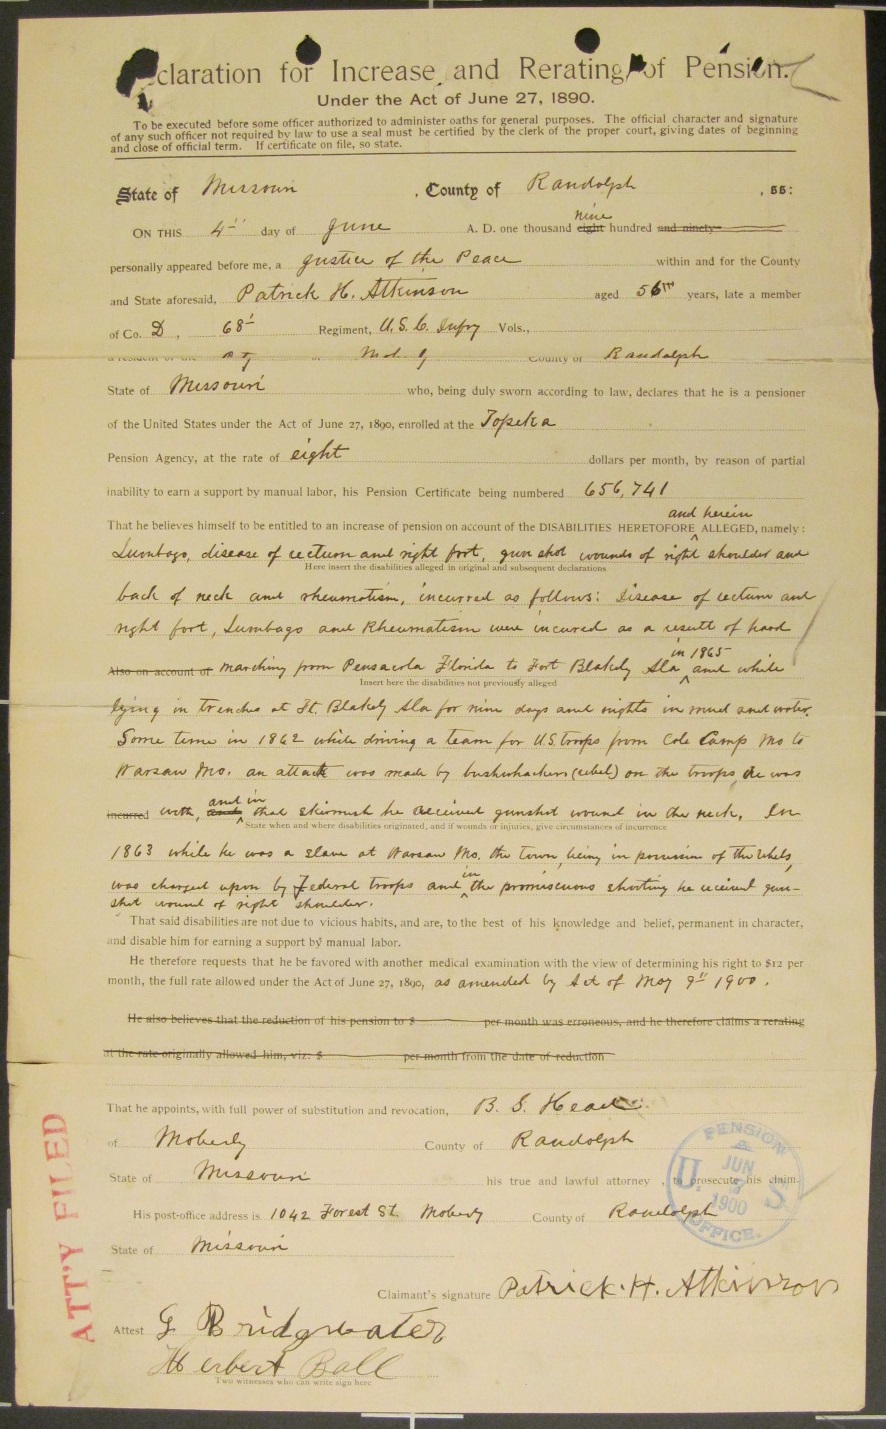 claration for Increase and Rerating of Pension.
Under the Act of June 27, 1890.
To be executed before some officer authorized to administer oaths for general purposes. The official character and signature
of any such officer not required by law to use a seal must be certified by the clerk of the proper court, giving dates of beginning
and close of official term. If certificate on file, so state.
State of Missouri, County of Randolph, ss:
nine
ON THIS 4" day of June A. D. one thousand eight hundred and ninety-
personally appeared before me, a Justice of the Peace within and for the County
and State aforesaid, Patrick H. Atkinson aged 56th years, late a member
of Co. D, 68" Regiment, U.S.C. Infry Vols.,
a resident of the County of Randolph
State of Missouri who, being duly sworn according to law, declares that he is a pensioner
of the United States under the Act of June 27, 1890, enrolled at the Topeka
Pension Agency, at the rate of eight dollars per month, by reason of partial
inability to earn a support by manual labor, his Pension Certificate being numbered 656,741
and herein
That he believes himself to be entitled to an increase of pension on account of the DISABILITIES HERETOFORE ^ ALLEGED, namely:
Lumbago, disease of rectum and right foot, gun shot wounds of right shoulder and
Here insert the disabilities alleged in original and subsequent declarations
back of neck and rheumatism, incurred as follows: Disease of rectum and
right foot, Lumbago and Rheumatism were incured as a result of hard
in 1865
Also on account of marching from Pensacola Florida to Fort Blakely Ala ^ and while
Insert here the disabilities not previously alleged
lying in trenches at Ft. Blakely Ala for nine days and nights in mud and water.
Some time in 1862 while driving a team for U.S. troops from Cole Camp Mo to
Warsaw Mo. an attack was made by bushwhackers (rebel) on the troops he was
and in
incurred with, and ^ that skirmish he received gunshot wound in the neck, In
State when and where disabilities originated, and if wounds or injuries, give circumstances of incurrence
1863 while he was a slave at Warsaw Mo. the town, being in possession of the rebels,
in
was charged upon by Federal troops and ^ the promiscuous shooting he received gun-
shot wound of right shoulder.
That said disabilities are not due to vicious habits, and are, to the best of his knowledge and belief, permanent in character,
and disable him for earning a support by manual labor.
He therefore requests that he be favored with another medical examination with the view of determining his right to $12 per
month, the full rate allowed under the Act of June 27, 1890, as amended by Act of May 9" 1900.
He also believes that the reduction of his pension to $ per month was erroneous, and he therefore claims a rerating
at the rate originally allowed him, viz: $ per month from the date of reduction
That he appoints, with full power of substitution and revocation, B. S. Head
of Moberly County of Randolph
State of Missouri his true and lawful attorney, to prosecute his claim.
His post-office address is 1042 Forest St. Moberly County of Randolph
State of Missouri
Claimant's signature Patrick. H. Atkinson
Attest G Bridgwater
Herbert Ball
Two witnesses who can write sign here
ATT'Y FILED
U. S. PENSION OFFICE.
JUN
1900